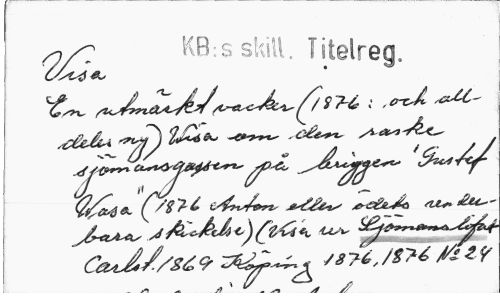 KB:s skill. Titelreg.
Visa
En utmärkt vacker (1876: och all-
deles ny) Visa om den raske
sjömansgossen på briggen "Gustaf
Wasa" (1876 Anton eller ödets under-
bara skickelse) (Visa ur Sjömanslifvet
Carlst. 1869 Köping 1876, 1876 No 24